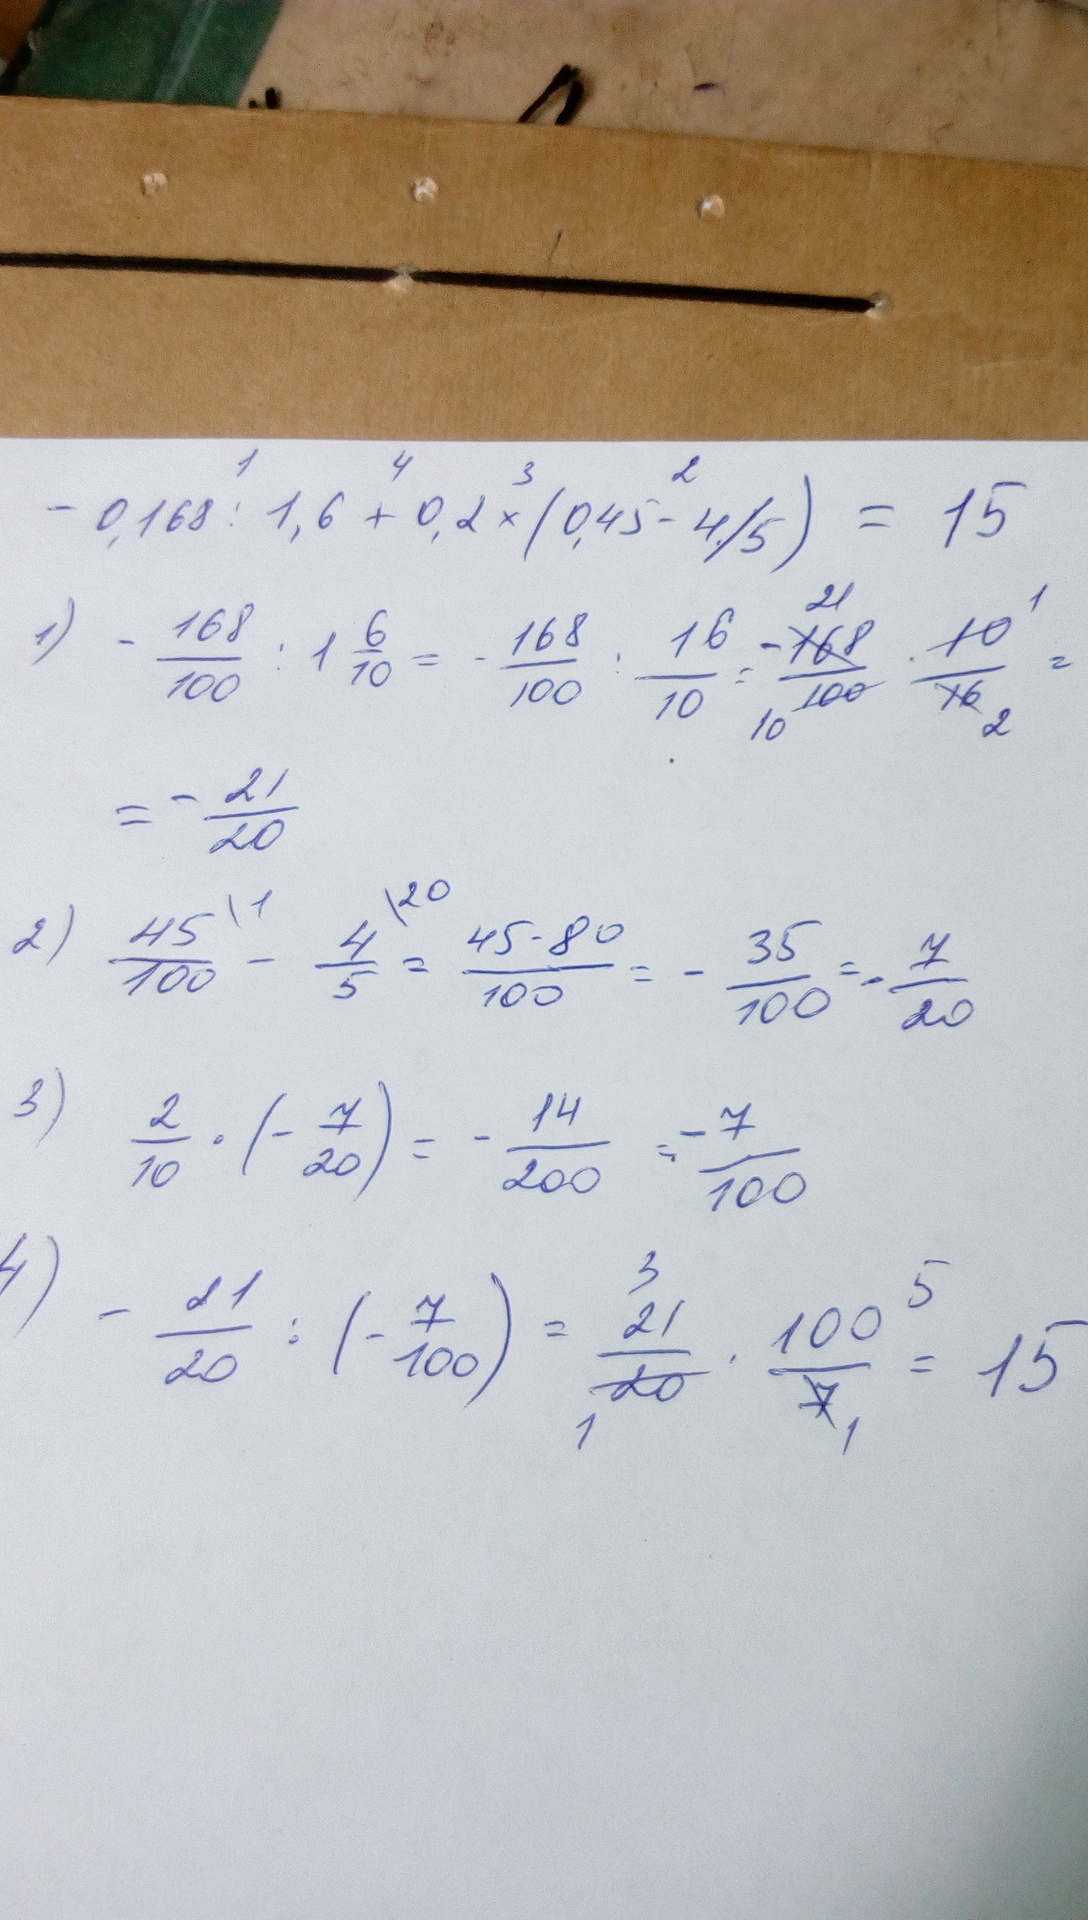 1 4 3 2
- 0,168 : 1,6 + 0,2 × (0,45 - 4/5) = 15
1) - 168/100 : 1 6/10 = - 168/100 : 16/10 = - 168/100 · 10/16 =
21 1
10 2
= - 21/20
2) 45/100 \1 - 4/5 \20 = 45-80/100 = - 35/100 = - 7/20
3) 2/10 · (- 7/20) = - 14/200 = - 7/100
4) - 21/20 : (- 7/100) = 21/20 · 100/7 = 15
3 5
1 1